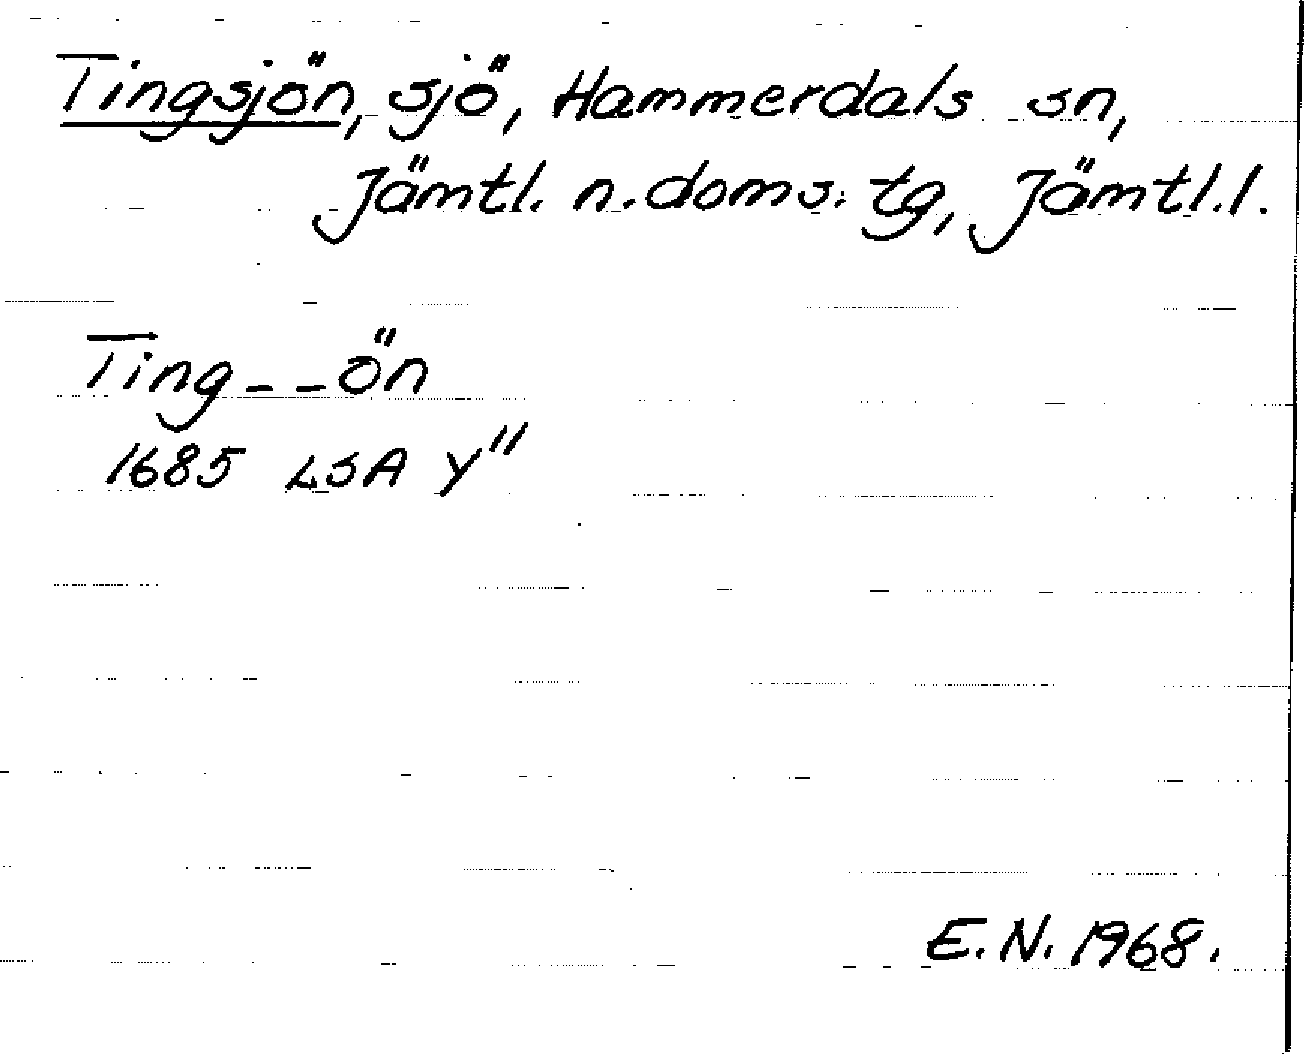 Tingsjön, sjö, Hammerdals sn,
Jämtl. n. doms. tg, Jämtl.l.
Ting--ön
1685 LSA Y"
E.N. 1968.